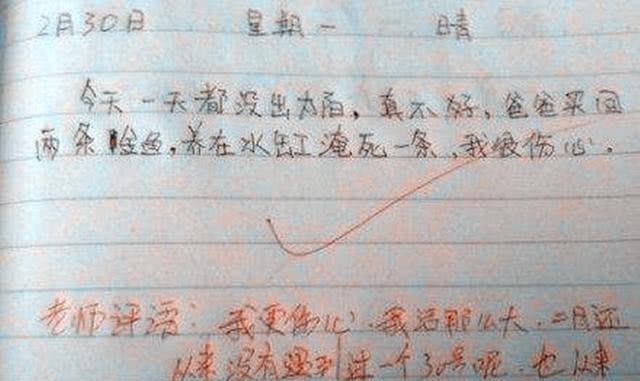 2月30日 星期一 晴
今天一天都没出太阳，真不好，爸爸买回
两条金鱼，养在水缸淹死一条，我很伤心。
老师评语：我更伤心，我活那么大，二月还
从来没有遇到过一个30号呢，也从来